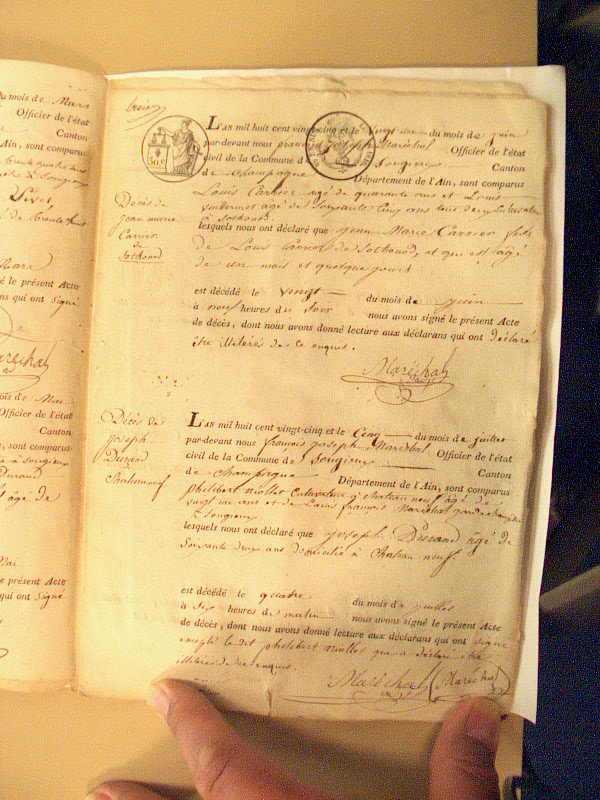 du mois de Mars
Officier de l'état
Canton
Ain, sont comparus
le présent Acte
ns qui ont Signé
Maréchal
du mois de Mai
Officier de l'état
Canton
, sont comparus
Durand
âgé de
Mai
le présent Acte
qui ont Signé
50 c
L'AN mil huit cent vingt-cinq et le Vingt un du mois de juin
par-devant nous françois joseph Maréchal Officier de l'état
civil de la Commune de Songieux Canton
de Champagne Département de l'Ain, sont comparus
Louis Carrier âgé de quarante ans et Louis
âgé de Soixante Cinq ans tous deux
à Sothonod.
lesquels nous ont déclaré que jean Marie Carrier fils
de Louis Carrier de Sothonod, et qui est âgé
de un mois et quelque jours
Décès de
jean marie
Carrier
de
Sothonod
est décédé le Vingt du mois de juin
à neuf heures du Soir nous avons signé le présent Acte
de décès, dont nous avons donné lecture aux déclarans qui ont déclaré
être illiterés de ce enquis.
Maréchal
Décès de
joseph
Durand
Chateauneuf
L'AN mil huit cent vingt-cinq et le Cinq du mois de juillet
par-devant nous françois joseph Maréchal Officier de l'état
civil de la Commune de Songieux Canton
de Champagne Département de l'Ain, sont comparus
philibert Miollet Cultivateur à Chateau neuf âgé de
vingt ans et de Louis françois Maréchal garde champêtre
à Songieux
lesquels nous ont déclaré que joseph Durand âgé de
Soixante deux ans domicilié à Chateau neuf
est décédé le quatre du mois de juillet
à Six heures du matin nous avons signé le présent Acte
de décès, dont nous avons donné lecture aux déclarans qui ont signé
excepté le dit philibert Miollet qui a déclaré être
illiteré de ce enquis.
Maréchal Maréchal